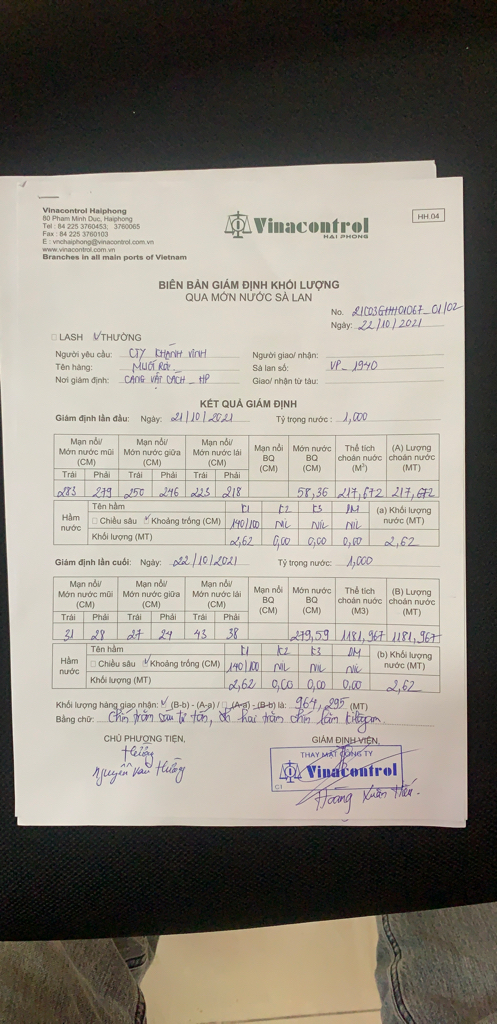 Vinacontrol Haiphong
80 Pham Minh Duc, Haiphong
Tel : 84 225 3760453; 3760065
Fax : 84 225 3760103
E : vnchaiphong@vinacontrol.com.vn
www.vinacontrol.com.vn
Branches in all main ports of Vietnam
Vinacontrol
HẢI PHÒNG
HH.04
BIÊN BẢN GIÁM ĐỊNH KHỐI LƯỢNG
QUA MỚN NƯỚC SÀ LAN
No. 21C03GHH01067_01/02
Ngày: 22/10/2021
LASH THƯỜNG
Người yêu cầu: CTY KHÁNH VINH Người giao/ nhận:
Tên hàng: MUỐI RỜI Sà lan số: VP_1940
Nơi giám định: CẢNG VẬT CÁCH _ HP Giao/ nhận từ tàu:
KẾT QUẢ GIÁM ĐỊNH
Giám định lần đầu: Ngày: 21/10/2021 Tỷ trọng nước: 1,000
Mạn nổi/ Mớn nước mũi (CM) Mạn nổi/ Mớn nước giữa (CM) Mạn nổi/ Mớn nước lái (CM) Mạn nổi BQ (CM) Mớn nước BQ (CM) Thể tích choán nước (M³) (A) Lượng choán nước (MT)
Trái Phải Trái Phải Trái Phải
283 279 250 246 223 218 58,36 217,672 217,672
Hầm nước Tên hầm K1 K2 K3 LM (a) Khối lượng nước (MT)
Chiều sâu Khoảng trống (CM) 140/100 NIL NIL NIL
Khối lượng (MT) 2,62 0,00 0,00 0,00 2,62
Giám định lần cuối: Ngày: 22/10/2021 Tỷ trọng nước: 1,000
Mạn nổi/ Mớn nước mũi (CM) Mạn nổi/ Mớn nước giữa (CM) Mạn nổi/ Mớn nước lái (CM) Mạn nổi BQ (CM) Mớn nước BQ (CM) Thể tích choán nước (M3) (B) Lượng choán nước (MT)
Trái Phải Trái Phải Trái Phải
31 28 27 24 43 38 279,59 1181,967 1181,967
Hầm nước Tên hầm K1 K2 K3 LM (b) Khối lượng nước (MT)
Chiều sâu Khoảng trống (CM) 140/100 NIL NIL NIL
Khối lượng (MT) 2,62 0,00 0,00 0,00 2,62
Khối lượng hàng giao nhận: (B-b) - (A-a) / (A-a) - (B-b) là: 964,295 (MT)
Bằng chữ: Chín trăm sáu tư tấn, hai trăm chín lăm kilôgam.
CHỦ PHƯƠNG TIỆN, GIÁM ĐỊNH VIÊN,
THAY MẶT CÔNG TY
Vinacontrol
Nguyễn Văn Hoàng Xuân